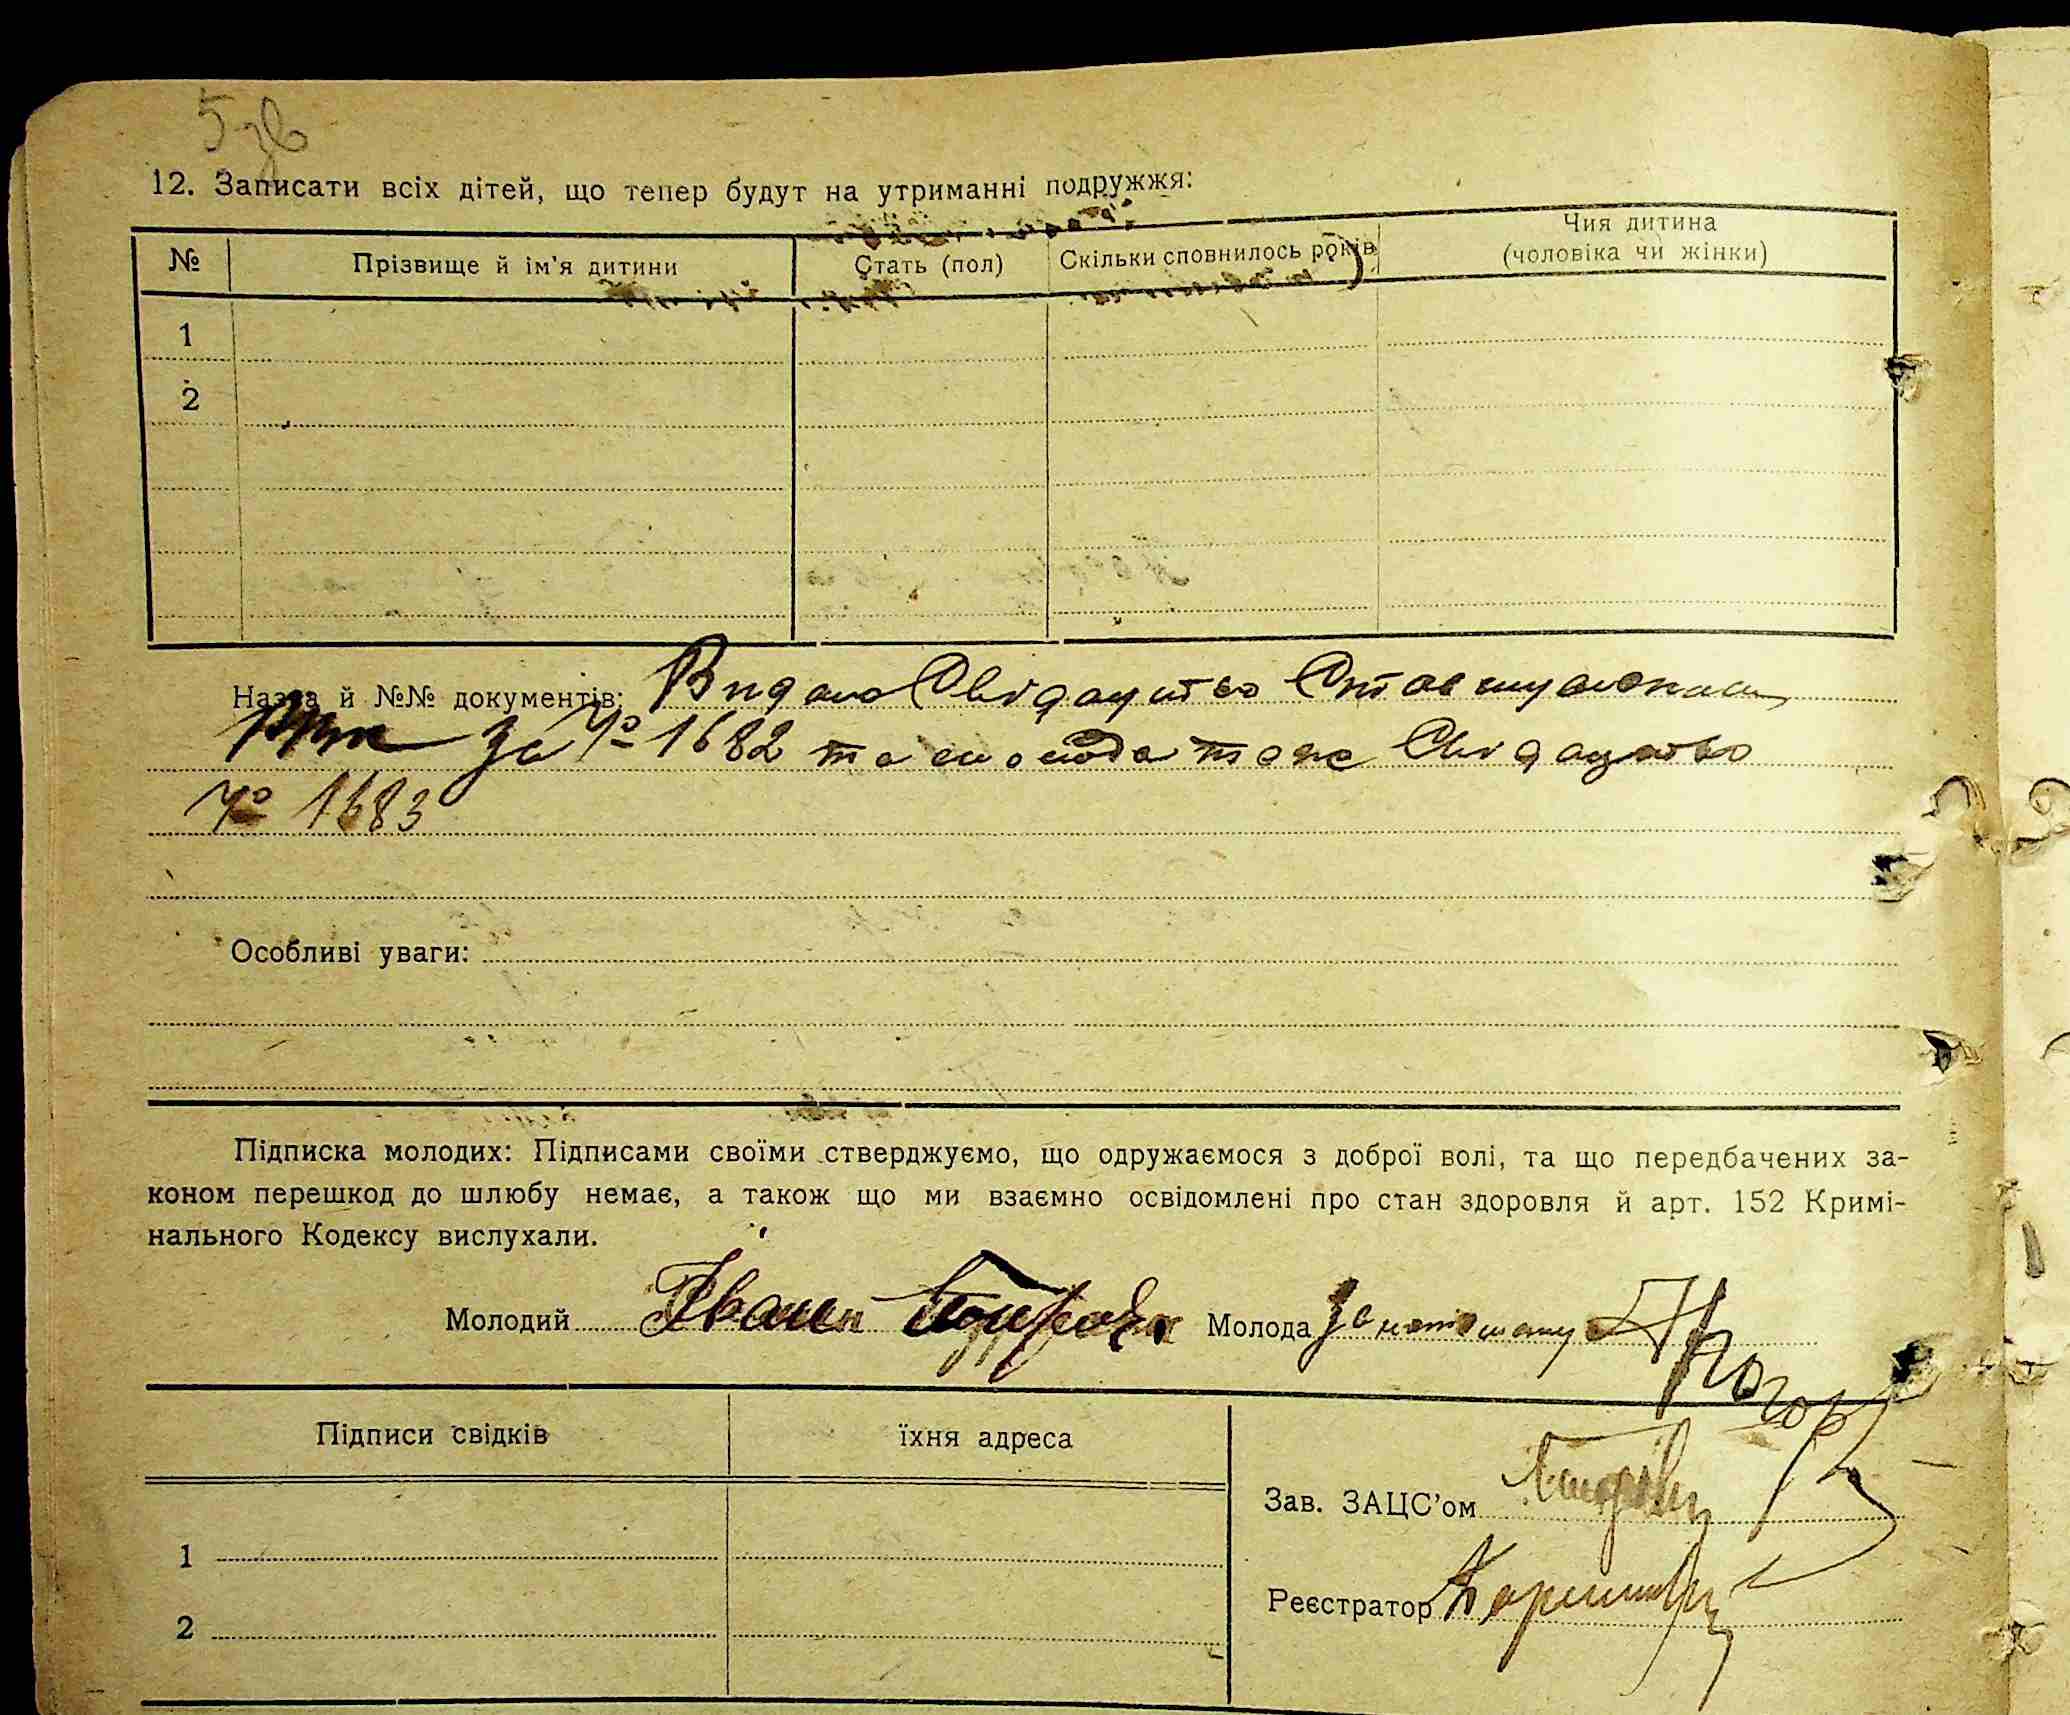 5зв
12. Записати всіх дітей, що тепер будут на утриманні подружжя:
№ Прізвище й ім'я дитини Стать (пол) Скільки сповнилось років Чия дитина (чоловіка чи жінки)
1
2
Назва й №№ документів: Видано Свідацтво
За № 1682 та молода тоже Свідацтво
№ 1683
Особливі уваги:
Підписка молодих: Підписами своїми стверджуємо, що одружаємося з доброї волі, та що передбачених за-
коном перешкод до шлюбу немає, а також що ми взаємно освідомлені про стан здоровля й арт. 152 Кримі-
нального Кодексу вислухали.
Молодий Іван Молода За
Підписи свідків їхня адреса
Зав. ЗАЦС'ом
1
Реєстратор
2